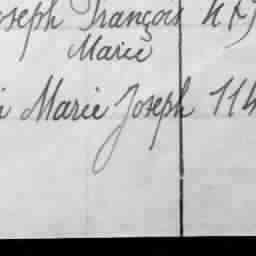 oseph François
Marie
Marie Joseph 114